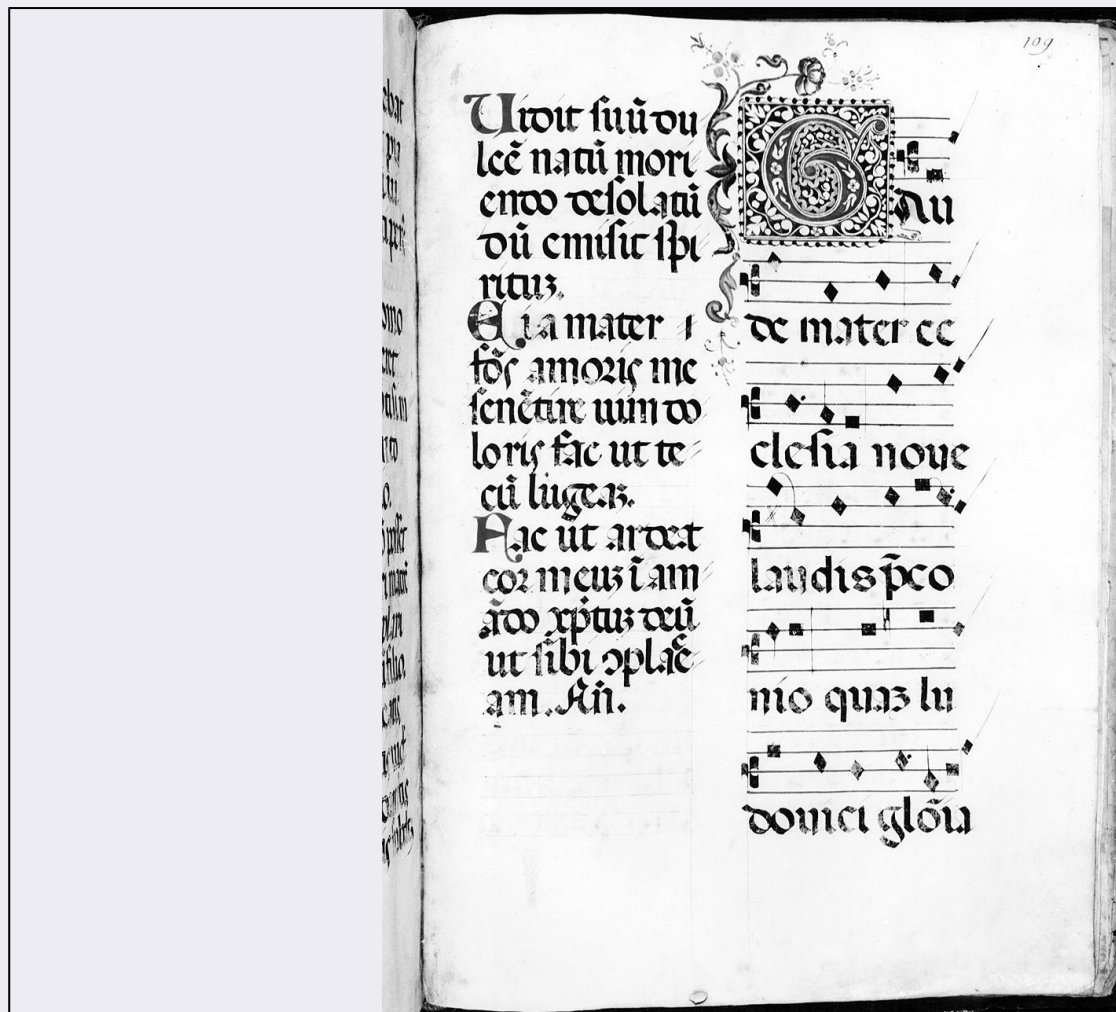 109
Uidit suū du
lcē natū mori
endo desolatū
dū emisit spi
rituꝫ.
Eia mater i
fōs amoris me
sentire uim do
loris fac ut te
cū lugeaꝫ.
Fac ut ardeat
cor meuꝫ ī am
ādo xp̄tuꝫ deū
ut sibi ɔplac̄
am. Am̄.
Gau
de mater ec
clesia noue
laudis p̄co
nio quaꝫ lu
douici glōia